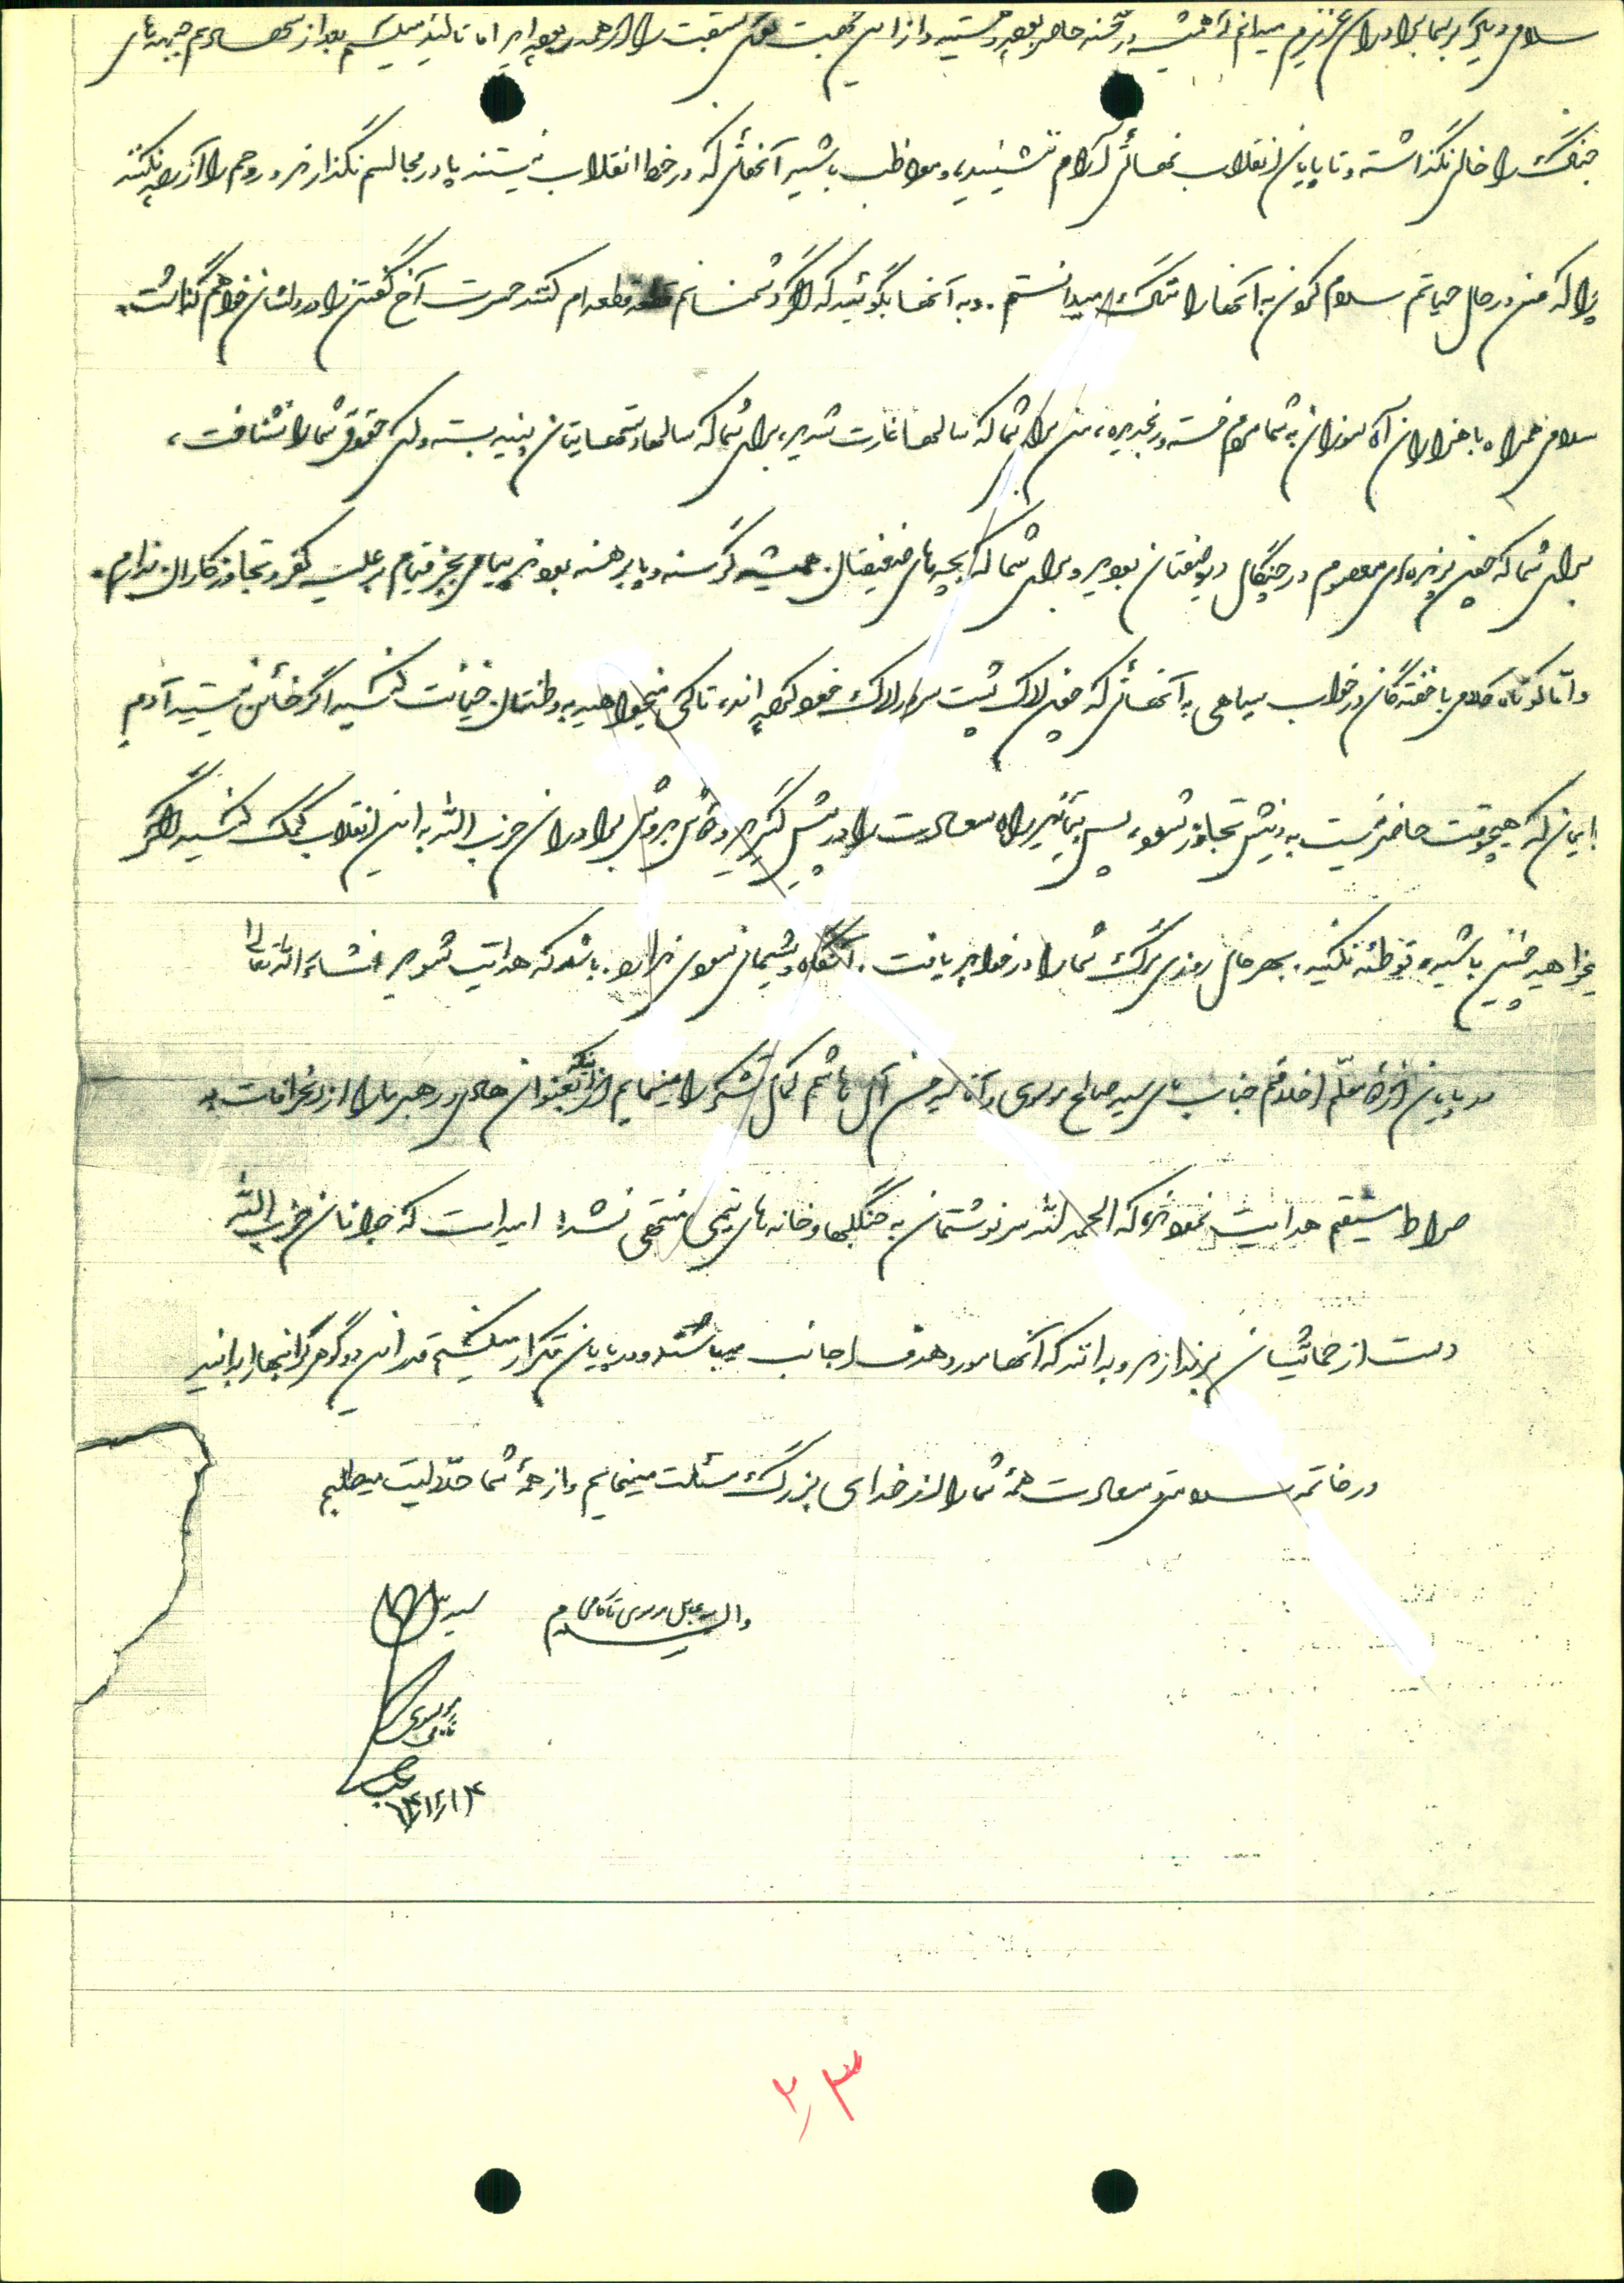 سلامی دیگر بشما برادران عزیزم میدانم که همیشه در صحنه حاضر بوده و هستید و از این جهت گوی سبقت را از همه ربوده‌اید اما تاکید میکنم بعد از شهادتم جبهه‌های
جنگ را خالی نگذاشته و تا پایان انقلاب بجائی آرام ننشینید، و مواظب باشید آنهائی که در خط انقلاب نیستند پا در مجالسم نگذارند و روحم را آزرده نکنند
چرا که من در حال حیاتم سلام کردن به آنها را ننگ میدانستم. و به آنها بگوئید که اگر دشمنانم قطعه قطعه‌ام کنند حسرت آخ گفتن را در دلشان خواهم گذاشت.
سلامی همراه با هزاران آه سوزان به شما مردم خسته و رنجدیده، من برای شما که سالها غارت شدید، برای شما که سالها دستهایتان پینه بسته و کسی حقوق شما را نشناخت،
برای شما که چون بره‌ای معصوم در چنگال دیو صفتان بودید و برای شما که بچه‌های ضعیفتان همیشه گرسنه و پا برهنه بودند پیامی بجز قیام بر علیه کفر و تجاوزکاران ندارم.
و امّا کوتاه کلامی با خفته‌گان در خواب سیاهی به آنهائی که چون لاک پشت سر در لاک خود کرده‌اند، تا کی میخواهید به وطنتان خیانت کنید اگر خائن نیستید آدم
با ایمان که هیچوقت حاضر نیست به دینش تجاوز شود، پس بیائید راه سعادت را در پیش گیرید و دوش بدوش برادران حزب الله به این انقلاب کمک کنید و اگر
نمیخواهید چنین باشید، توطئه نکنید. بهر حال روزی مرگ شما را در خواهد یافت. آنگاه پشیمانی سودی ندارد. باشد که هدایت شوید انشاءالله تعالی
در پایان از معلّم اخلاقم جناب آقای سید صالح موسوی و آقا سید حسن آل هاشم کمال تشکر را مینمایم که بعنوان هادی و رهبر ما را از انحرافات به
صراط مستقیم هدایت نمودند که الحمد لله سرنوشتمان به جنگلها و خانه‌های تیمی منتهی نشد. امید است که جوانان حزب الله
دست از حمایتشان برندارند و بدانند که آنها مورد هدف اجانب میباشند و در پایان تکرار میکنم قدر این دو گوهر گرانبها را بدانید
در خاتمه سلامتی و سعادت همۀ شما را از خدای بزرگ مسئلت مینمایم و از همۀ شما حلّالیت میطلبم
والسلام سید عباس موسوی
سید
موسوی
۲٫۳